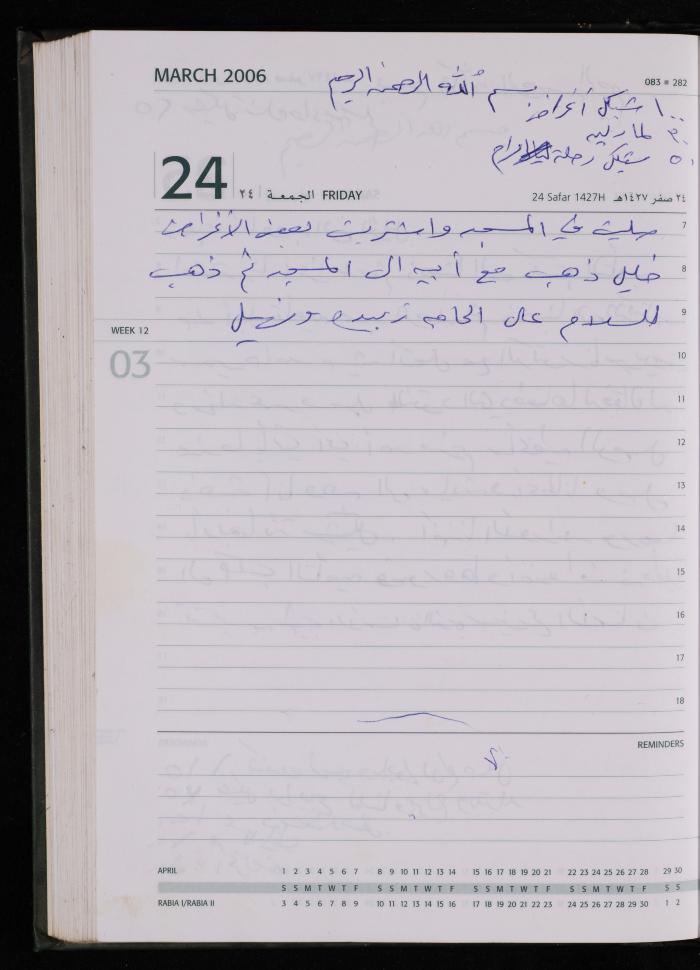 MARCH 2006
083 • 282
بسم الله الرحمن الرحيم
١٠٠ شيكل أغراض
٣٠
٥٠ شيكل رحلة
24
الجمعة ٢٤ FRIDAY
24 Safar 1427H ٢٤ صفر ١٤٢٧هـ
صليت في المسجد واشتريت بعض الأغراض
7
خليل ذهب مع أبيه الى المسجد ثم ذهب
8
للسلام على الحاجه زبيده ونهيل
9
WEEK 12
03
10
11
12
13
14
15
16
17
18
REMINDERS
APRIL 1 2 3 4 5 6 7 8 9 10 11 12 13 14 15 16 17 18 19 20 21 22 23 24 25 26 27 28 29 30
S S M T W T F S S M T W T F S S M T W T F S S M T W T F S S
RABIA I/RABIA II 3 4 5 6 7 8 9 10 11 12 13 14 15 16 17 18 19 20 21 22 23 24 25 26 27 28 29 30 1 2